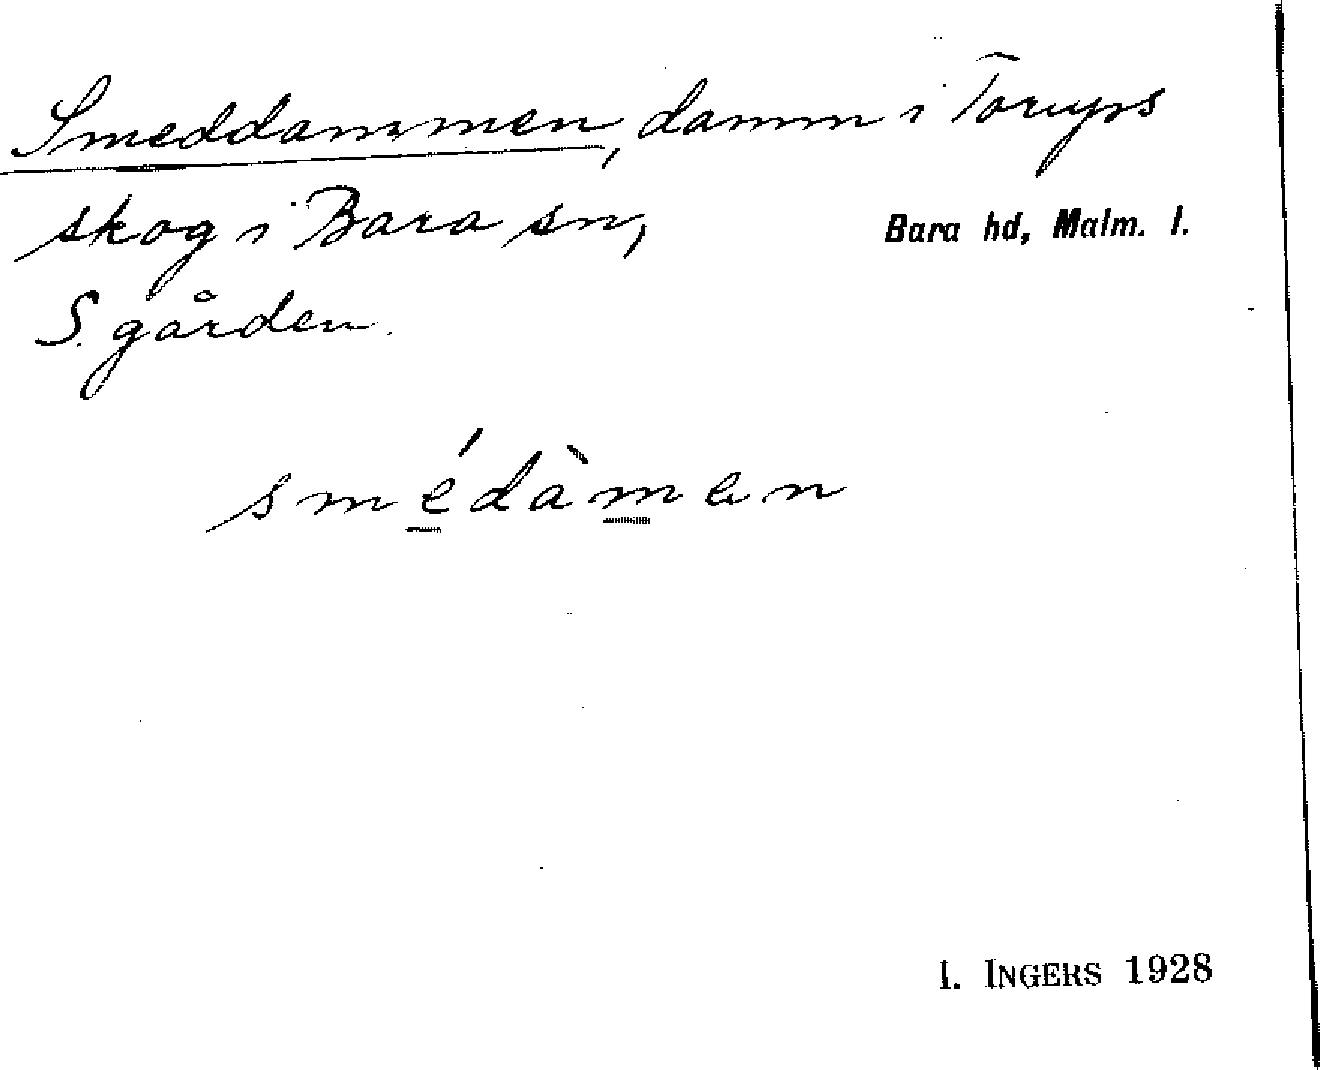 Smeddammen, damm i Torups
skog i Bara sn, Bara hd, Malm. l.
S. gården.
smédàmen
I. INGERS 1928